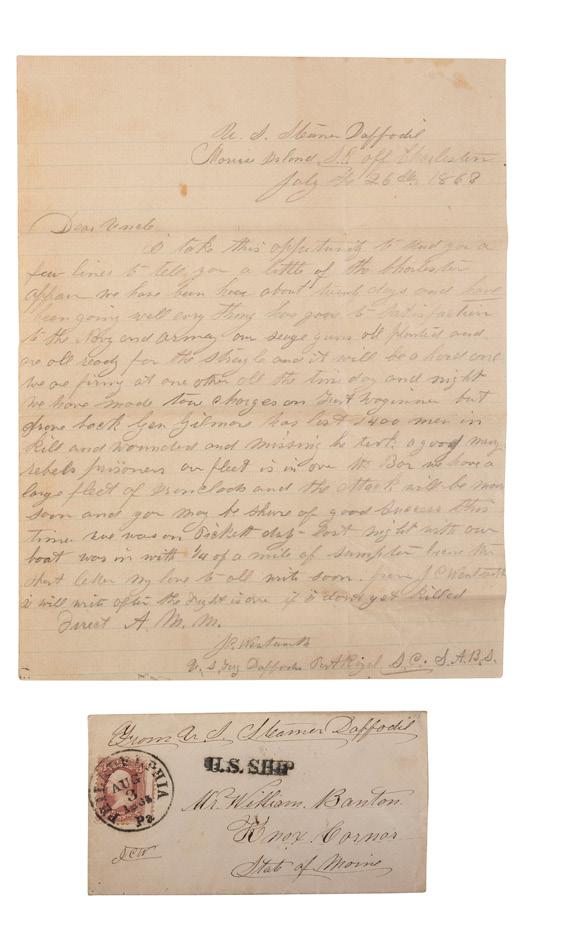 U. S. Steamer Daffodil
Morris Island, S.C. off Charleston
July the 26th, 1863
Dear Uncle
I take this oppertunity to send you a
few lines to tell you a little of the Charleston
affair we have been here about twenty days and have
been going well every thing has gone to satisfaction
to the Navy and army our seage guns all planted and
are all ready for the strugle and it will be a hard one
we are firing at one other all the time day and night
we have made tow charges on Fort Wagoner but
drove back Gen Gilmore has lost 1400 men in
kill and wounded and missing he took a good many
rebels prisoners our fleet is in over the Bar we have a
large fleet of Ironclads and the attack will be made
soon and you may be shure of good success this
time we was on Pickett duty last night with our
boat was in with 1/4 of a mile of sumpter the
short letter my love to all write soon. from J C Wentworth
I will write after the fight is over if I dont get killed
Direct A. M. M.
J C Wentworth
U. S. Daffodil Port Royal S.C. S.A.B.S.
From U. S. Steamer Daffodil
U.S. SHIP
PHILADELPHIA
AUG
3
Pa
Mr William. Banton
Knox Cornor
State of Maine
JCW